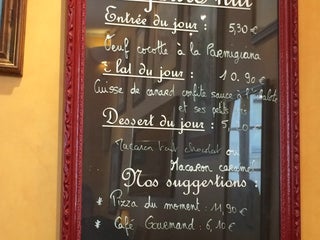 Entrée du jour : 5,30 €
Oeuf cocotte à la Parmigiana
Plat du jour : 10,90 €
Cuisse de canard confite sauce à l'échalote
et ses petits
Dessert du jour : 5,
Macaron tout chocolat ou
Macaron caramel
Nos suggestions :
* Pizza du moment : 11,90 €
* Café Gourmand : 6,10 €